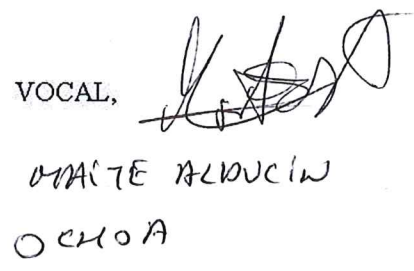 VOCAL,
MAITE ALDUCIN
OCHOA